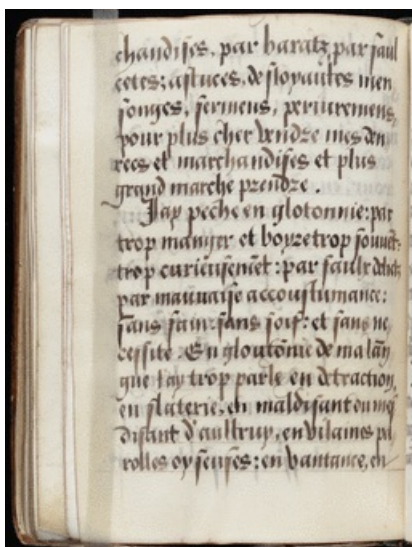 chandises, par baratz, par faul
cetes: astuces, desloyautes men
songes, sermens, periuremens,
pour plus cher vendre mes den
rees et marchandises et plus
grand marche prendre.
Jay peche en glotonnie: par
trop manger et boyre trop souuēt:
trop curieusemēt: par faulx delictz
par mauuaise accoustumance:
sans faim: sans soif: et sans ne
cessite. En gloutōnie de ma lan
gue Jay trop parle en detraction,
en flaterie, en maldisant ou mes
disant d'aultruy, en vilaines pa
rolles oyseuses: en vantance, en